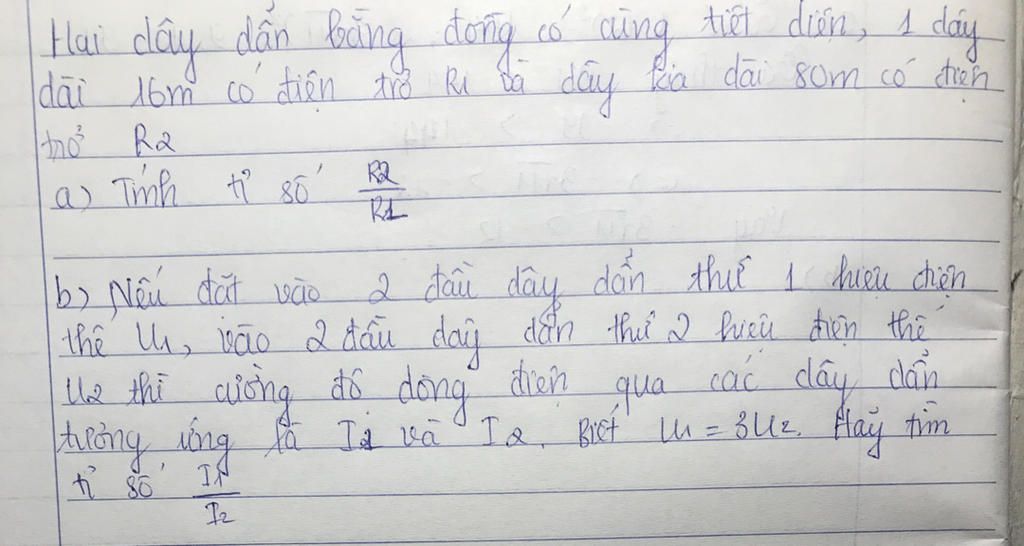 Hai dây dẫn bằng đồng có cùng tiết diện, 1 dây
dài 16m có điện trở R1 và dây kia dài 80m có điện
trở R2
a) Tính tỉ số R2/R1
b) Nếu đặt vào 2 đầu dây dẫn thứ 1 hiệu điện
thế U1, vào 2 đầu dây dẫn thứ 2 hiệu điện thế
U2 thì cường độ dòng điện qua các dây dẫn
tương ứng là I1 và I2. Biết U1 = 3U2. Hãy tìm
tỉ số I1/I2